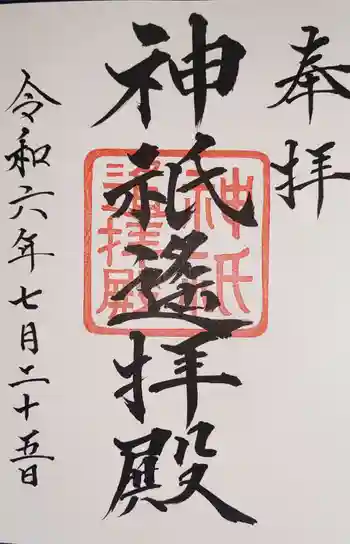 奉拝
神祇遙拝殿
神祇
遙拝殿
令和六年七月二十五日